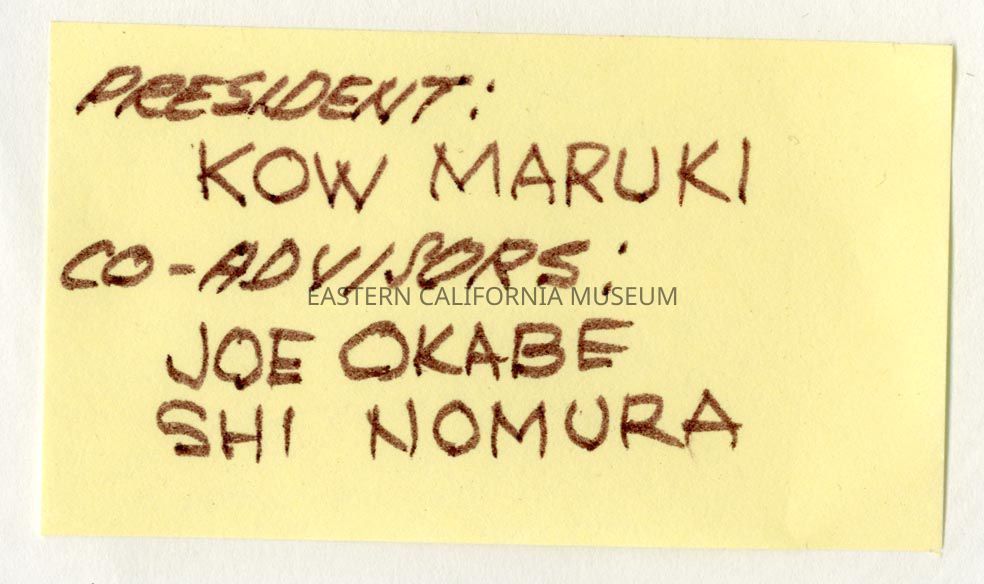 PRESIDENT:
KOW MARUKI
CO-ADVISORS:
EASTERN CALIFORNIA MUSEUM
JOE OKABE
SHI NOMURA